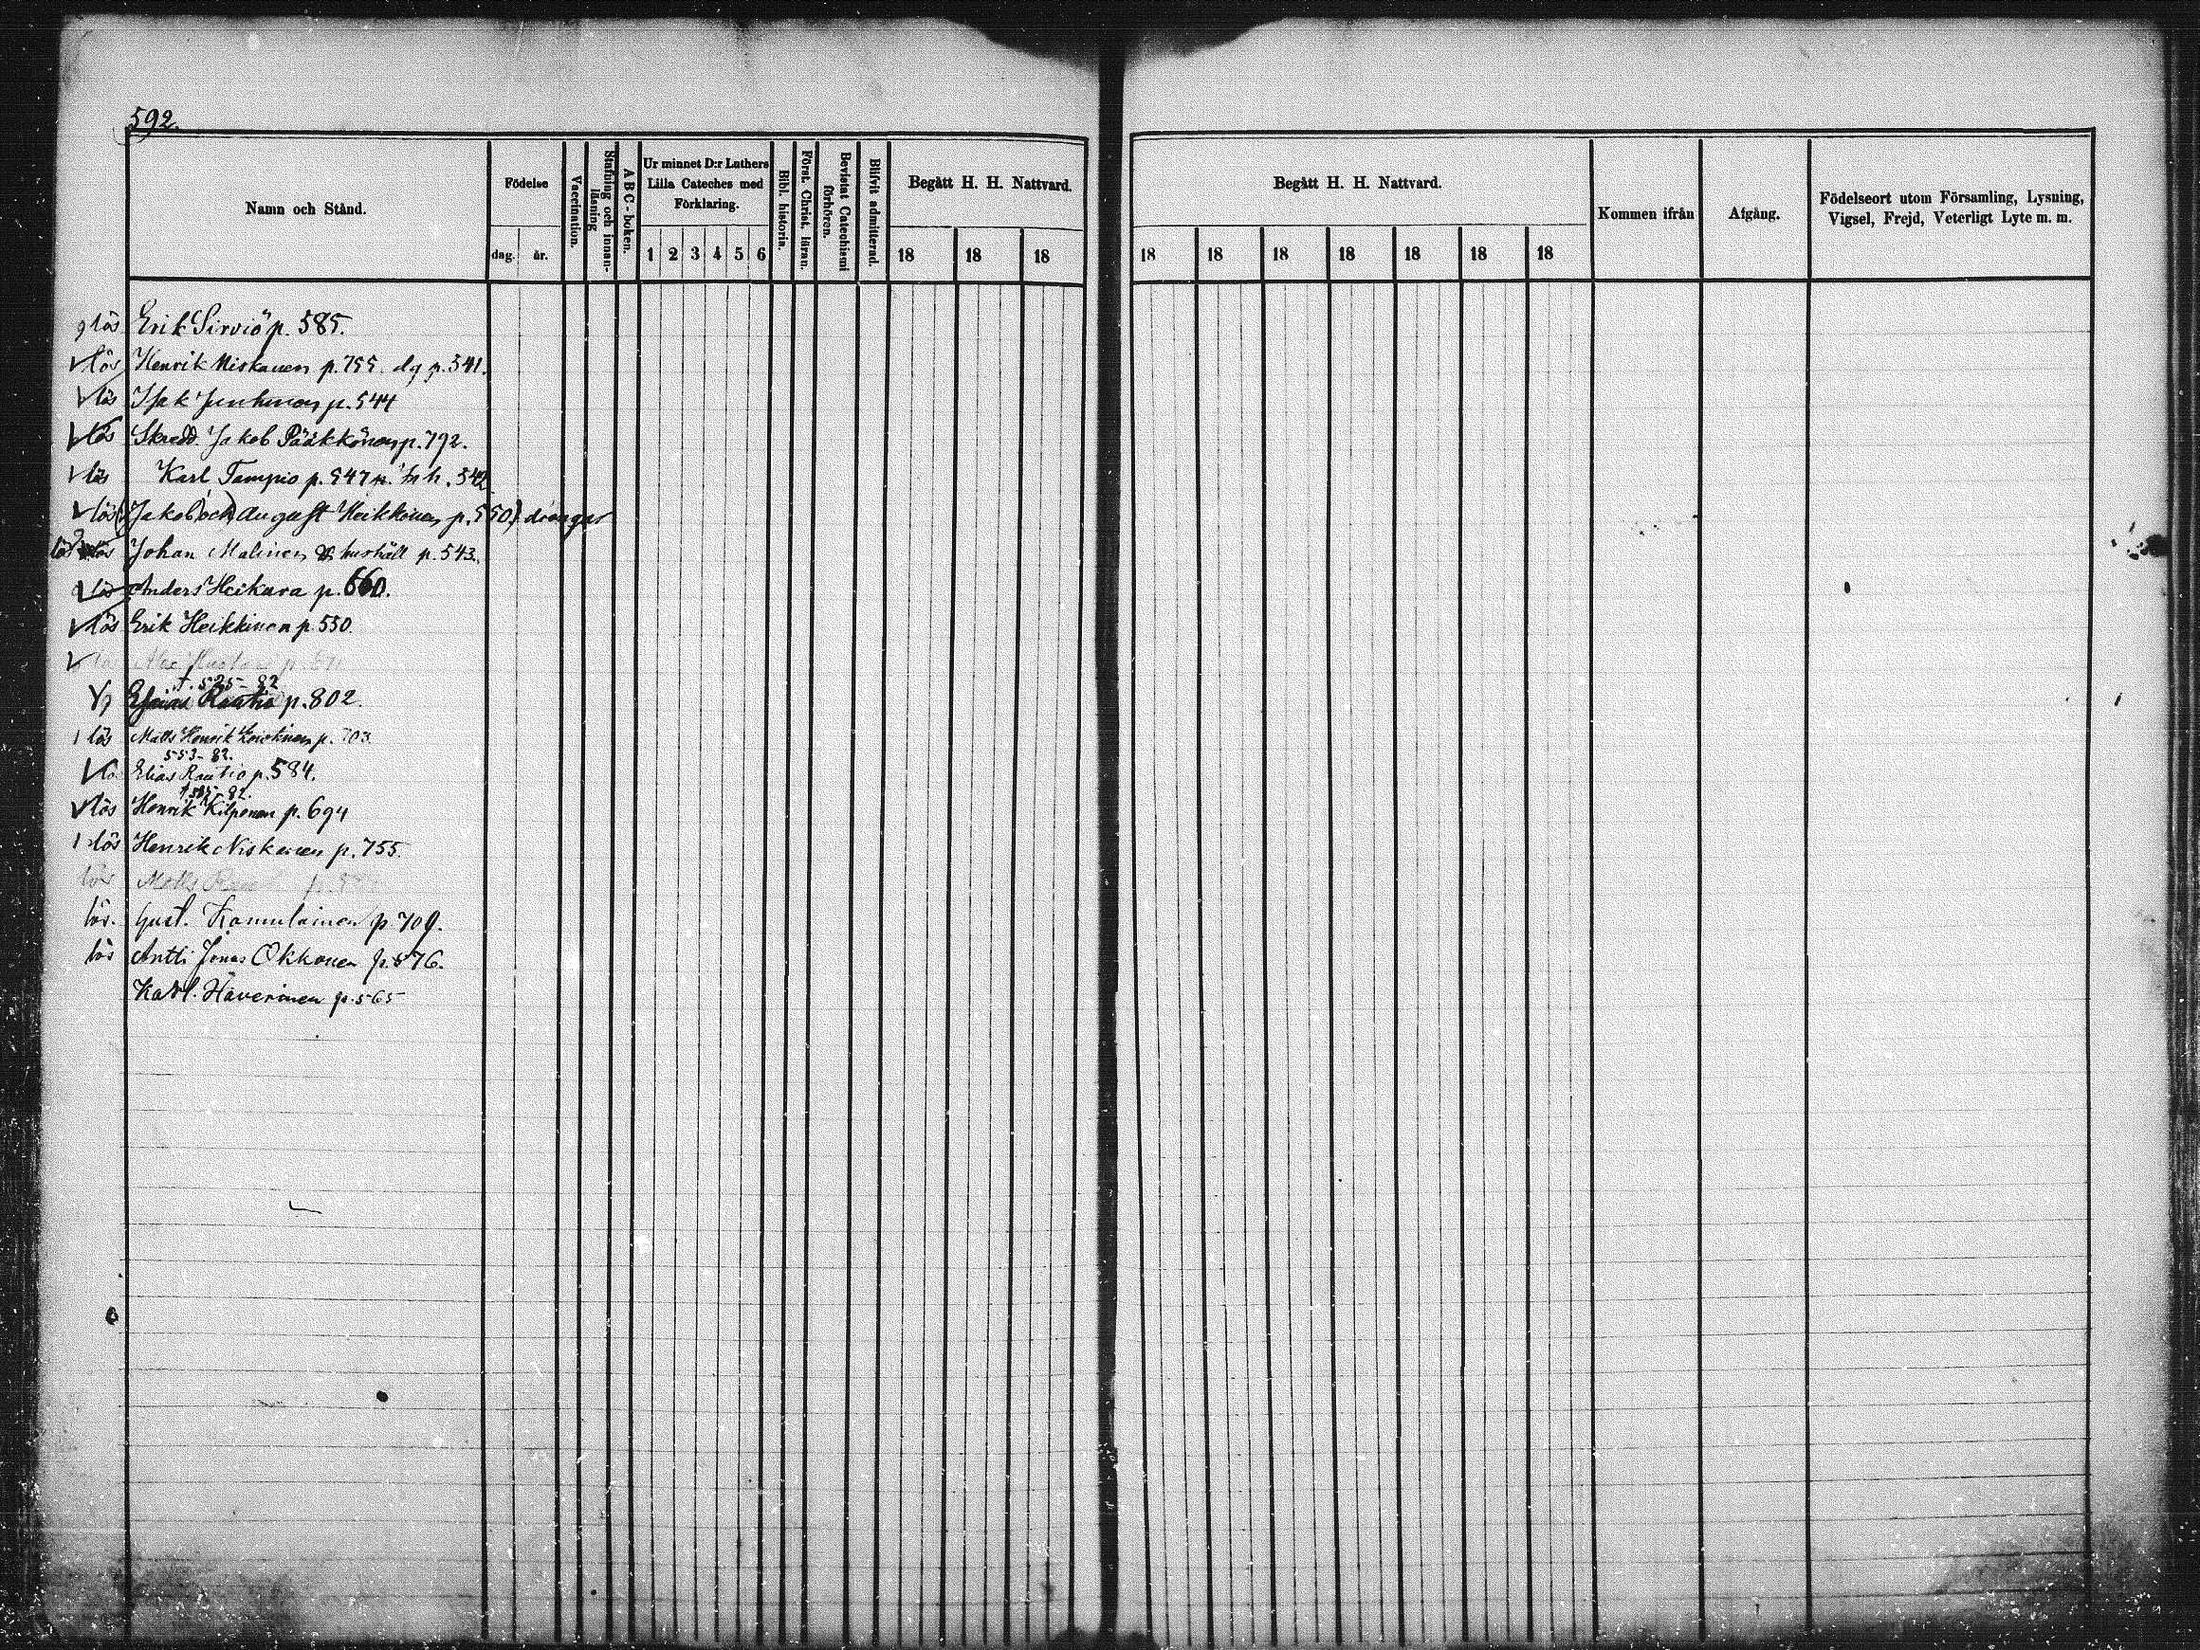 592.
Namn och Stånd.
Födelse
dag. år.
Vaccination.
Stafning och innanläsning
A B C-boken.
Ur minnet D:r Luthers
Lilla Cateches med
Förklaring.
1 2 3 4 5 6
Bibl. historia.
Först. Christ. läran.
Bevistat Catechismi förhören.
Blifvit admitterad.
Begått H. H. Nattvard.
18 18 18
Begått H. H. Nattvard.
18 18 18 18 18 18 18
Kommen ifrån
Afgång.
Födelseort utom Församling, Lysning,
Vigsel, Frejd, Veterligt Lyte m. m.
lös Erik Sirviö p. 585.
lös Henrik Niskanen p. 755. p. 541.
lös Isak Juntunen p. 544
lös Skredd. Jakob Pääkkönen p. 792.
lös Karl Tampio p. 547 542
lös (Jakob och) August Heikkinen p. 550) drängar
lös Johan Malinen hushåll p. 543.
lös Anders Heikura p. 660.
lös Erik Heikkinen p. 550.
p.
t. 525-82
Esaias Rautio p. 802.
lös Matts Henrik p. 703
553-82.
Elias Rautio p. 584.
82.
lös Henrik Kilponen p. 694
lös Henrik Niskanen p. 755.
lös Matts p.
lös. Gust. Komulainen p 709.
lös Antti Jonas Okkonen p. 576.
Karl. Häverinen p. 565